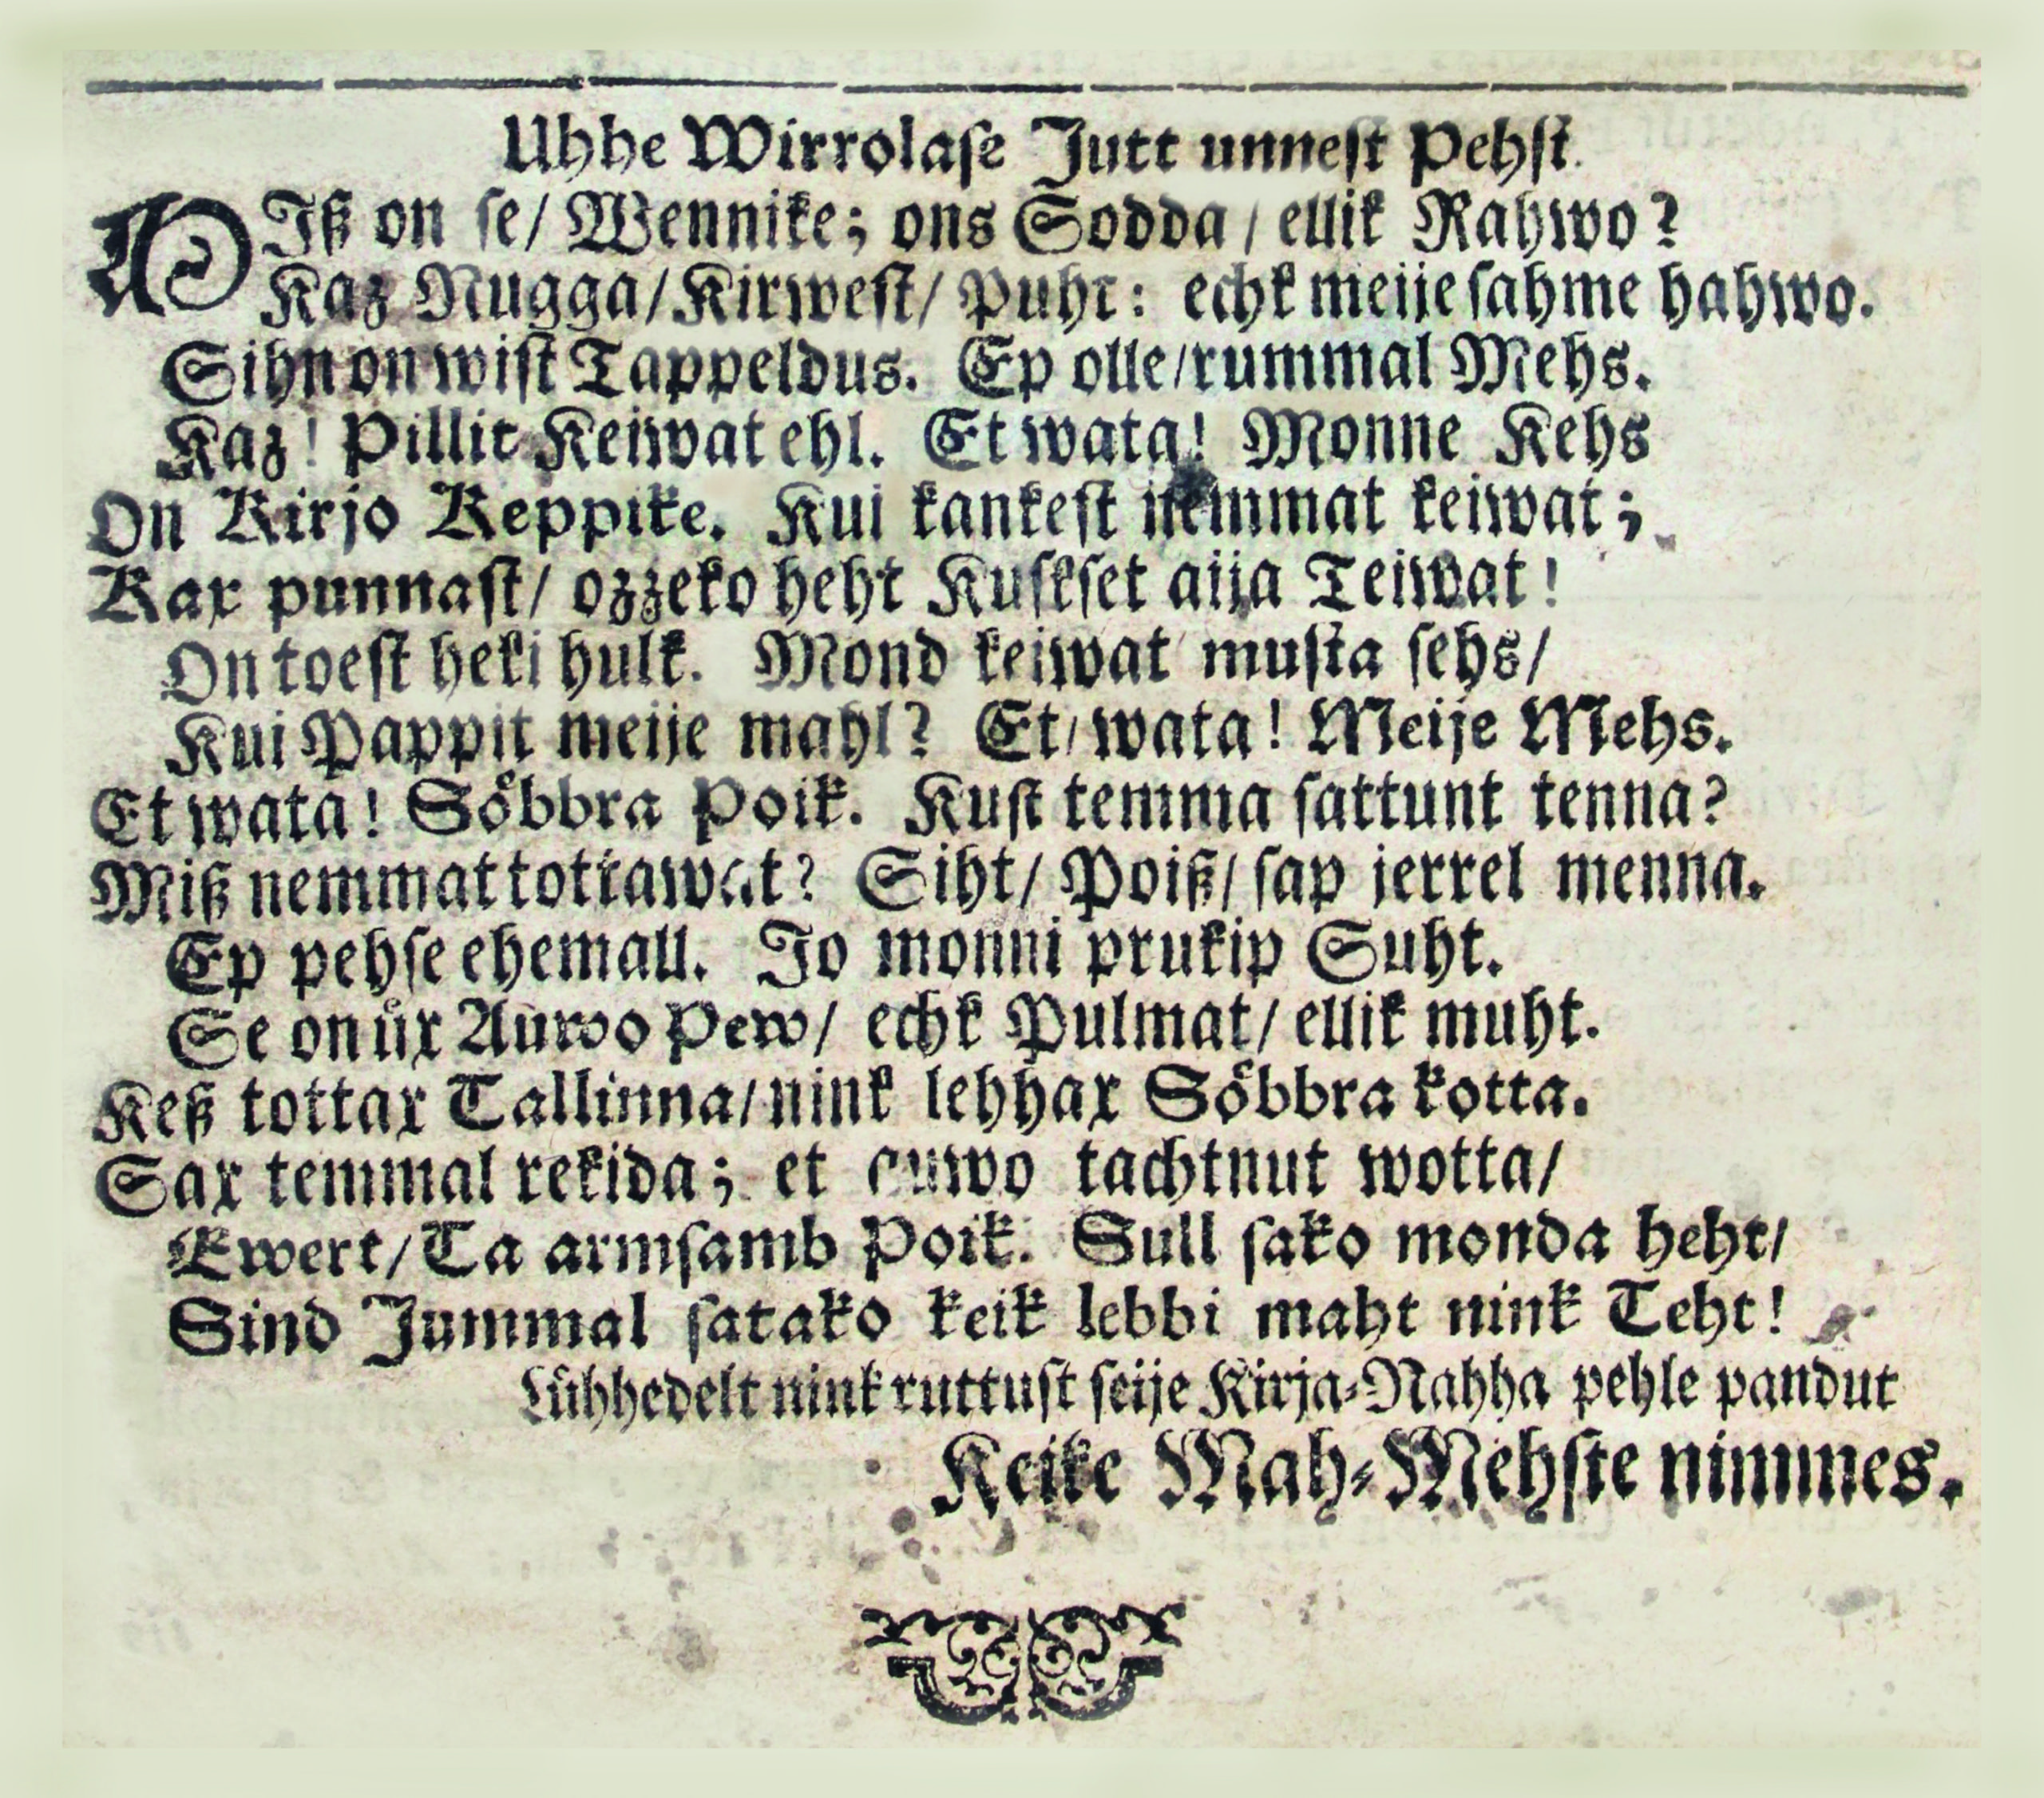 Uhhe Wirrolase Jutt unnest Pehst.
Miß on se/ Wennike; ons Sodda/ ellik Rahwo?
Kaz Nugga/ Kirwest/ Puht: echk meije sahme hahwo.
Sihn on wist Tappeldus. Ep olle/ rummal Mehs.
Kaz! Pillit Keiwat ehl. Et wata! Monne Kehs
On Kirjo Keppike. Kui kankest nemmat keiwat;
Kax punnast/ ozzeko heht Kuskset aija Teiwat!
On toest heki hulk. Mond keiwat musta sehs/
Kui Pappit meije mahl? Et/ wata! Meije Mehs.
Et wata! Soͤbbra Poik. Kust temma sattunt tenna?
Miß nemmat tottawat? Siht/ Poiß/ sap jerrel menna.
Ep pehse ehemall. Jo monni prukip Suht.
Se on uͤx Auwo Pew/ echk Pulmat/ ellik muht.
Keß tottax Tallinna/ nink lehhax Soͤbbra kotta.
Sax temmal rekida; et auwo tachtnut wotta/
Ewert/ Ta armsamb Poik. Sull sako monda heht/
Sind Jummal satako keik lebbi maht nink Teht!
Luͤhhedelt nink ruttust seije Kirja-Nahha pehle pandut
Keike Mah-Mehste nimmes.